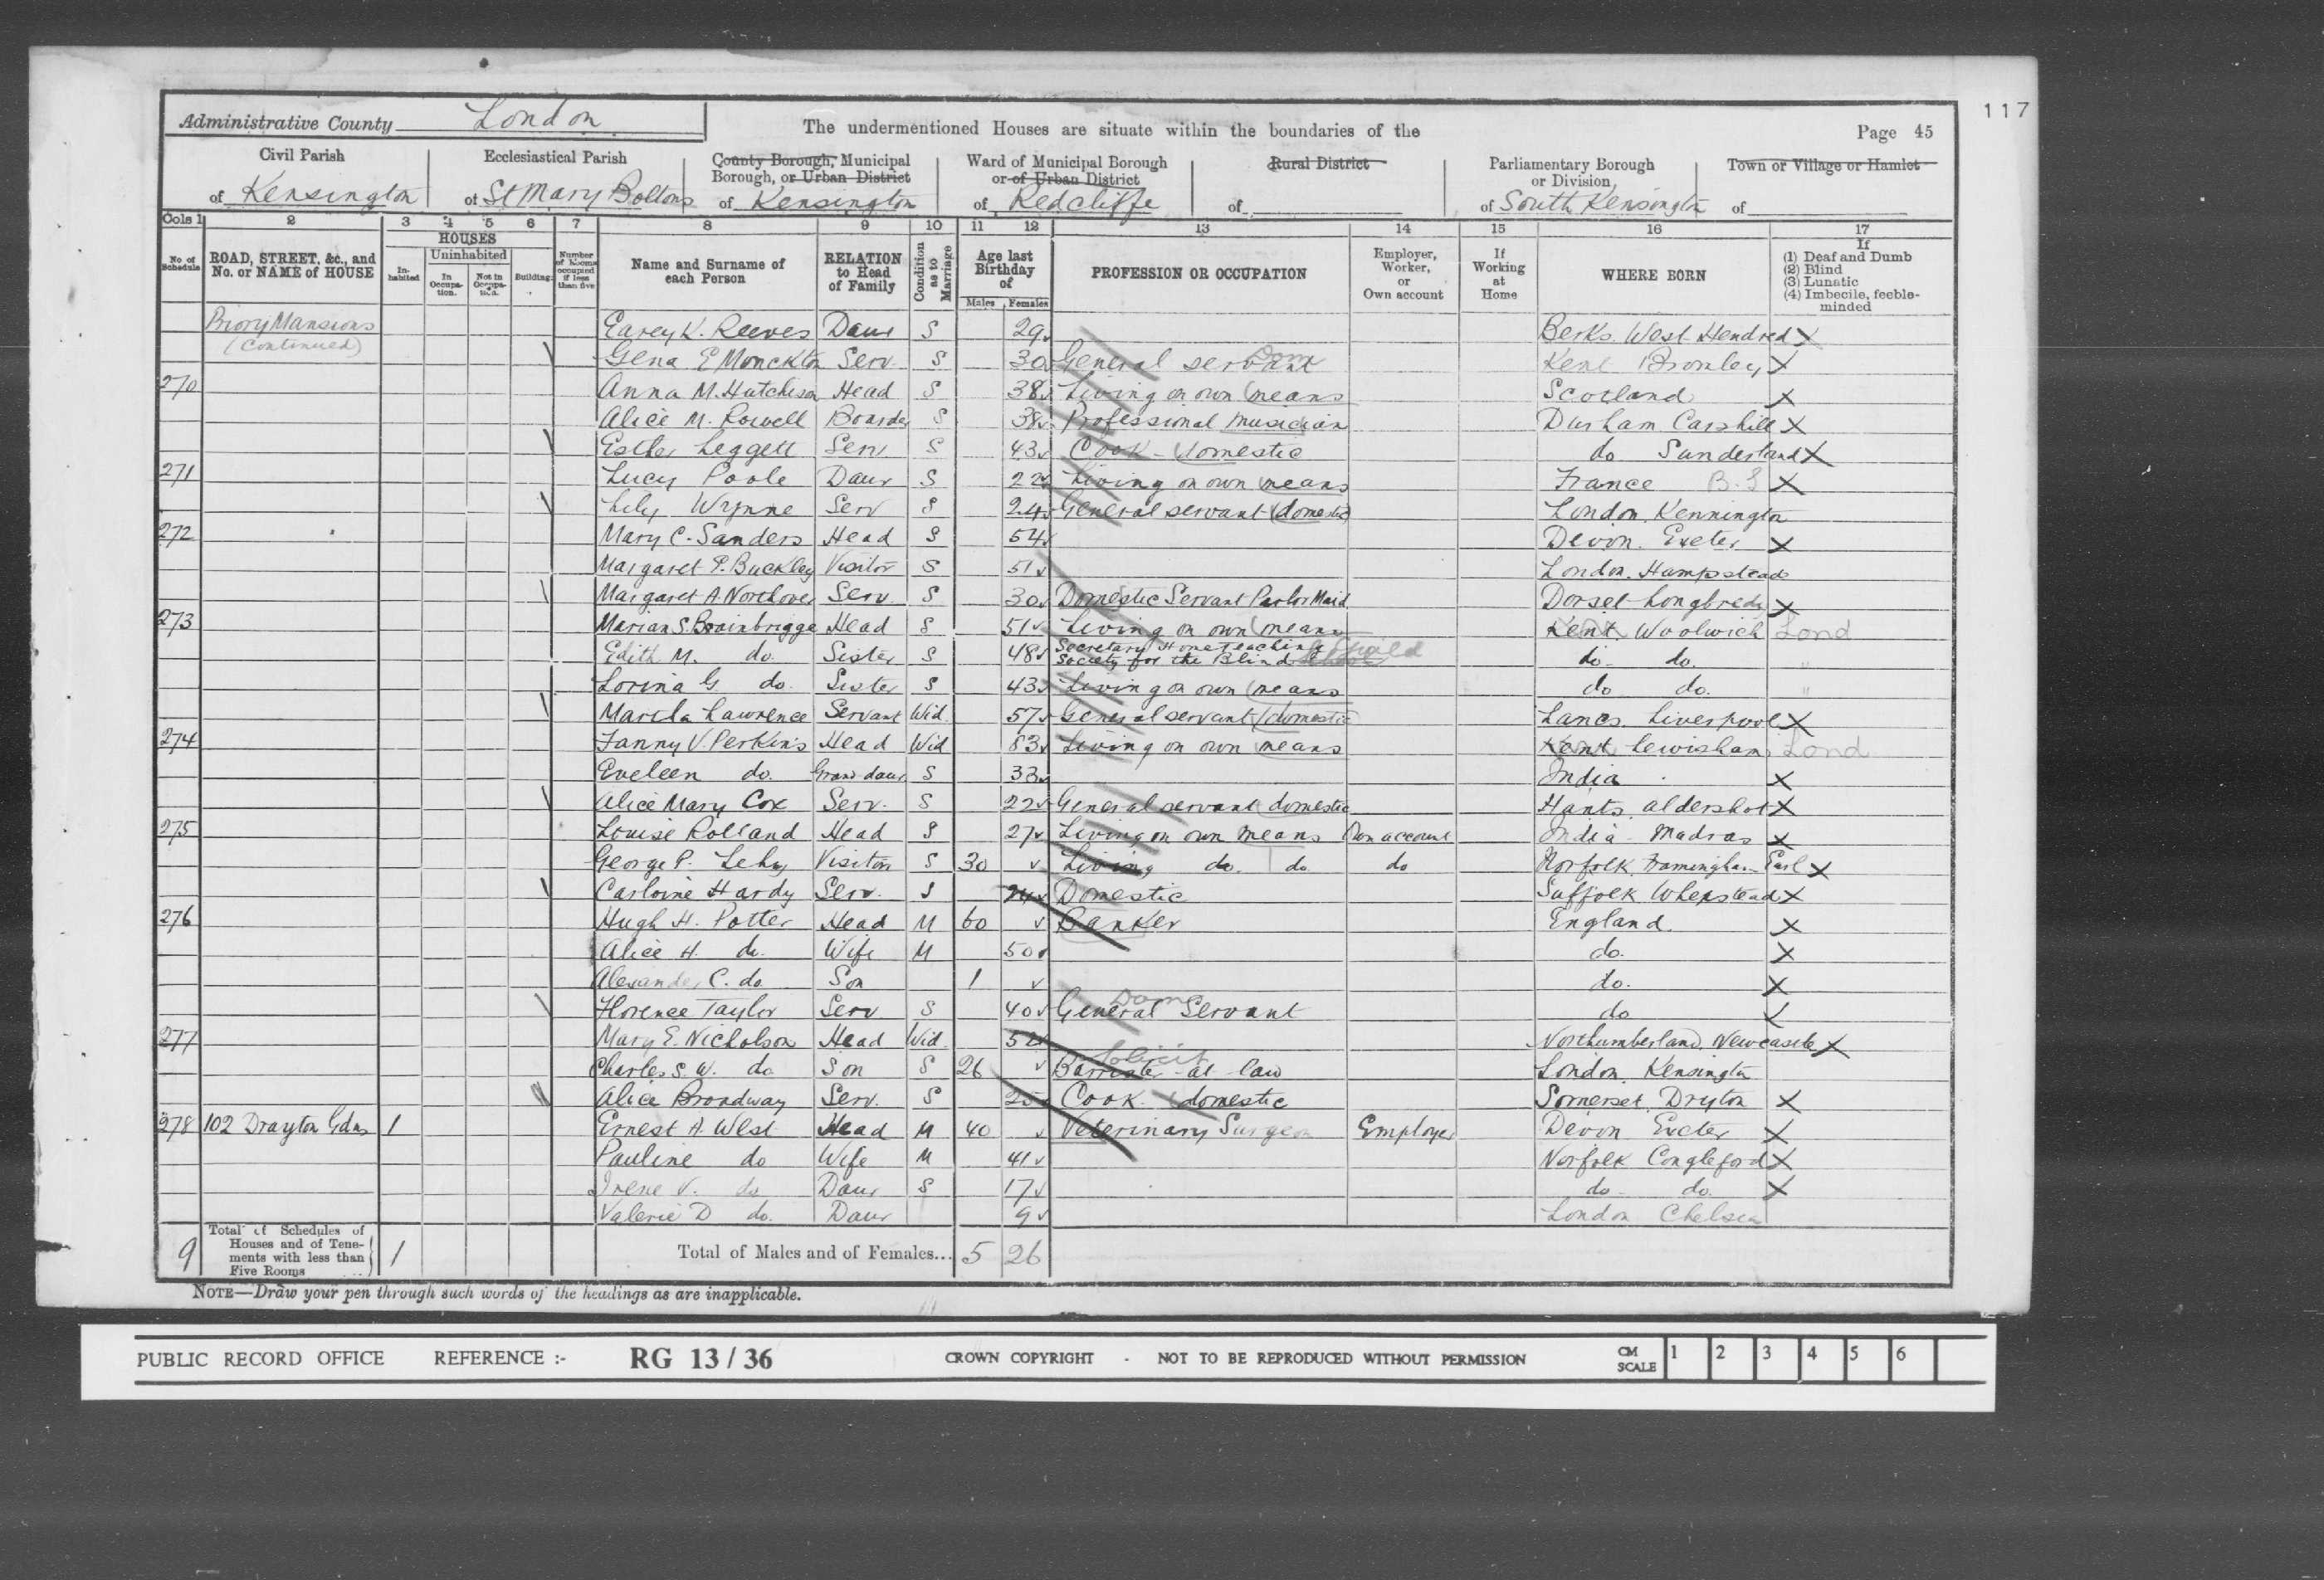 117
Administrative County London
The undermentioned Houses are situate within the boundaries of the
Page 45
Civil Parish of Kensington
Ecclesiastical Parish of St Mary Boltons
County Borough, Municipal Borough, or Urban District of Kensington
Ward of Municipal Borough or of Urban District of Redcliffe
Rural District of
Parliamentary Borough or Division of South Kensington
Town or Village or Hamlet of
Cols 1 2 3 4 5 6 7 8 9 10 11 12 13 14 15 16 17
No. of Schedule
ROAD, STREET, &c., and No. or NAME of HOUSE
HOUSES
Inhabited
Uninhabited
In Occupation.
Not in Occupation.
Building.
Number of Rooms occupied if less than five
Name and Surname of each Person
RELATION to Head of Family
Condition as to Marriage
Age last Birthday of
Males Females
PROFESSION OR OCCUPATION
Employer, Worker, or Own account
If Working at Home
WHERE BORN
If
(1) Deaf and Dumb
(2) Blind
(3) Lunatic
(4) Imbecile, feeble-minded
Priory Mansions K. Reeves Daur S 29 Berks. West Hendred X
(Continued) Gena E Monckton Serv. S 30 General servant Dom Kent Bromley X
270 Anna M. Hutcheson Head S 38 Living on own means Scotland X
Alice M. Rowell Boarder S 38 Professional musician Durham X
Esther Leggett Serv S 43 Cook - domestic do Sunderland X
271 Lucy Poole Daur S 22 Living on own means France B.S X
Lily Wynne Serv S 24 General servant (domestic) London. Kennington
272 Mary C. Sanders Head S 54 Devon. Exeter X
Margaret P. Buckley Visitor S 51 London. Hampstead
Margaret A. Northover Serv. S 30 Domestic Servant Parlor Maid Dorset Longbredy X
273 Marian S. Brainbrigge Head S 51 Living on own means Kent Woolwich Lond
Edith M. do. Sister S 48 Secretary Home Teaching Society for the Blind do. do. "
Lorina G do. Sister S 43 Living on own means do do. "
Lawrence Servant Wid. 57 General servant (domestic) Lancs. Liverpool X
274 Fanny V. Perkins Head Wid 83 Living on own means Kent Lewisham Lond
Eveleen do. Grand daur S 33 India X
Alice Mary Cox Serv. S 22 General servant domestic Hants. Aldershot X
275 Louise Rolland Head S 27 Living on own means Own account India - Madras X
George P. Visitor S 30 Living do. do do Norfolk. Framingham Earl X
Carloine Hardy Serv. S 24 Domestic Suffolk Wherstead X
276 Hugh H. Potter Head M 60 Banker England. X
Alice H. do. Wife M 50 do. X
Alexander C. do Son 1 do. X
Florence Taylor Serv. S 40 General Servant Dom do X
277 Mary E. Nicholson Head Wid. 52 Northumberland. Newcastle X
Charles S. W. do Son S 26 Barrister - at - law Solicit London. Kensington
Alice Broadway Serv. S 25 Cook (domestic Somerset. Dryton X
278 102 Drayton Gdns 1 Ernest A. West Head M 40 Veterinary Surgeon Employer Devon Exeter X
Pauline do Wife M 41 Norfolk Congleford X
Irene V. do Daur S 17 do - do. X
Valerie D do. Daur 9 London Chelsea
9 Total of Schedules of Houses and of Tenements with less than Five Rooms 1
Total of Males and of Females... 5 26
NOTE—Draw your pen through such words of the headings as are inapplicable.
PUBLIC RECORD OFFICE REFERENCE :- RG 13 / 36 CROWN COPYRIGHT - NOT TO BE REPRODUCED WITHOUT PERMISSION CM SCALE 1 2 3 4 5 6